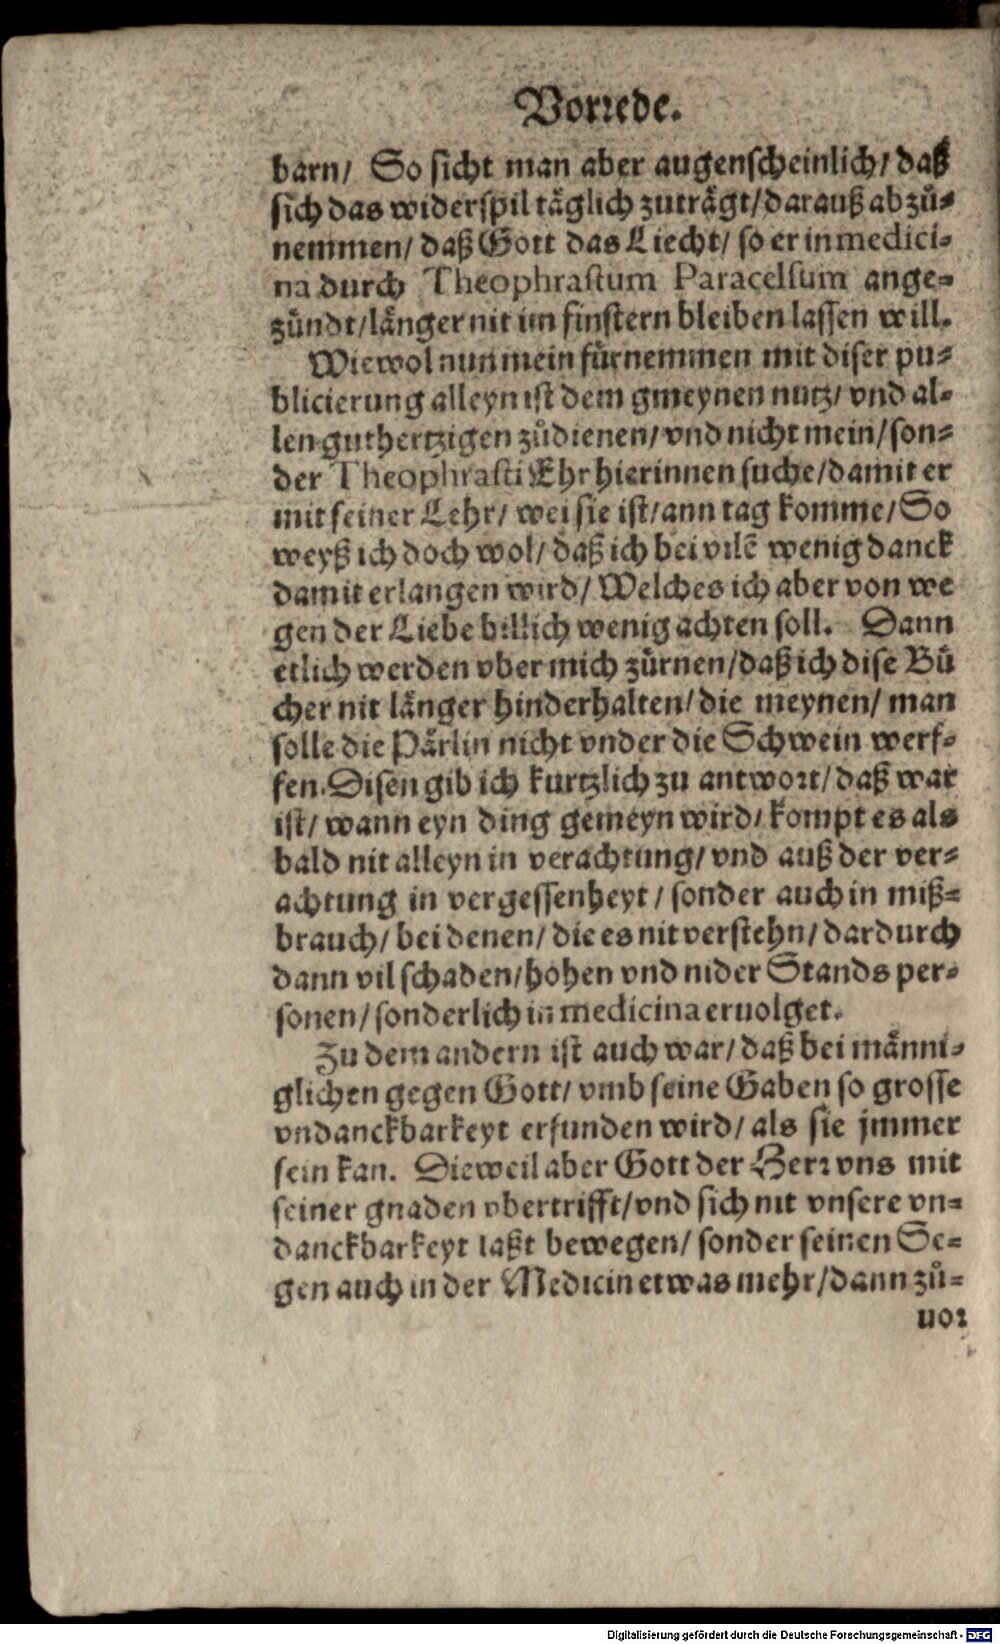 Vorrede.
barn/ So sicht man aber augenscheinlich/ daß
sich das widerspil täglich zuträgt/ darauß abzů-
nemmen/ daß Gott das Liecht/ so er in medici-
na durch Theophrastum Paracelsum ange-
zündt/ länger nit im finstern bleiben lassen will.
Wiewol nun mein fürnemmen mit diser pu-
blicierung alleyn ist dem gmeynen nutz/ vnd al-
len guthertzigen zůdienen/ vnd nicht mein/ son-
der Theophrasti Ehr hierinnen suche/ damit er
mit seiner Lehr/ wei sie ist/ ann tag komme/ So
weyß ich doch wol/ daß ich bei vilẽ wenig danck
damit erlangen wird/ Welches ich aber von we
gen der Liebe billich wenig achten soll. Dann
etlich werden vber mich zürnen/ daß ich dise Bü
cher nit länger hinderhalten/ die meynen/ man
solle die Pärlin nicht vnder die Schwein werf-
fen. Disen gib ich kurtzlich zu antwort/ daß war
ist/ wann eyn ding gemeyn wird/ kompt es als
bald nit alleyn in verachtung/ vnd auß der ver-
achtung in vergessenheyt/ sonder auch in miß-
brauch/ bei denen/ die es nit verstehn/ dardurch
dann vil schaden/ hohen vnd nider Stands per-
sonen/ sonderlich in medicina eruolget.
Zu dem andern ist auch war/ daß bei männi-
glichen gegen Gott/ vmb seine Gaben so grosse
vndanckbarkeyt erfunden wird/ als sie jmmer
sein kan. Dieweil aber Gott der Herr vns mit
seiner gnaden vbertrifft/ vnd sich nit vnsere vn-
danckbarkeyt laßt bewegen/ sonder seinen Se-
gen auch in der Medicin etwas mehr/ dann zů-
uor
Digitalisierung gefördert durch die Deutsche Forschungsgemeinschaft - DFG